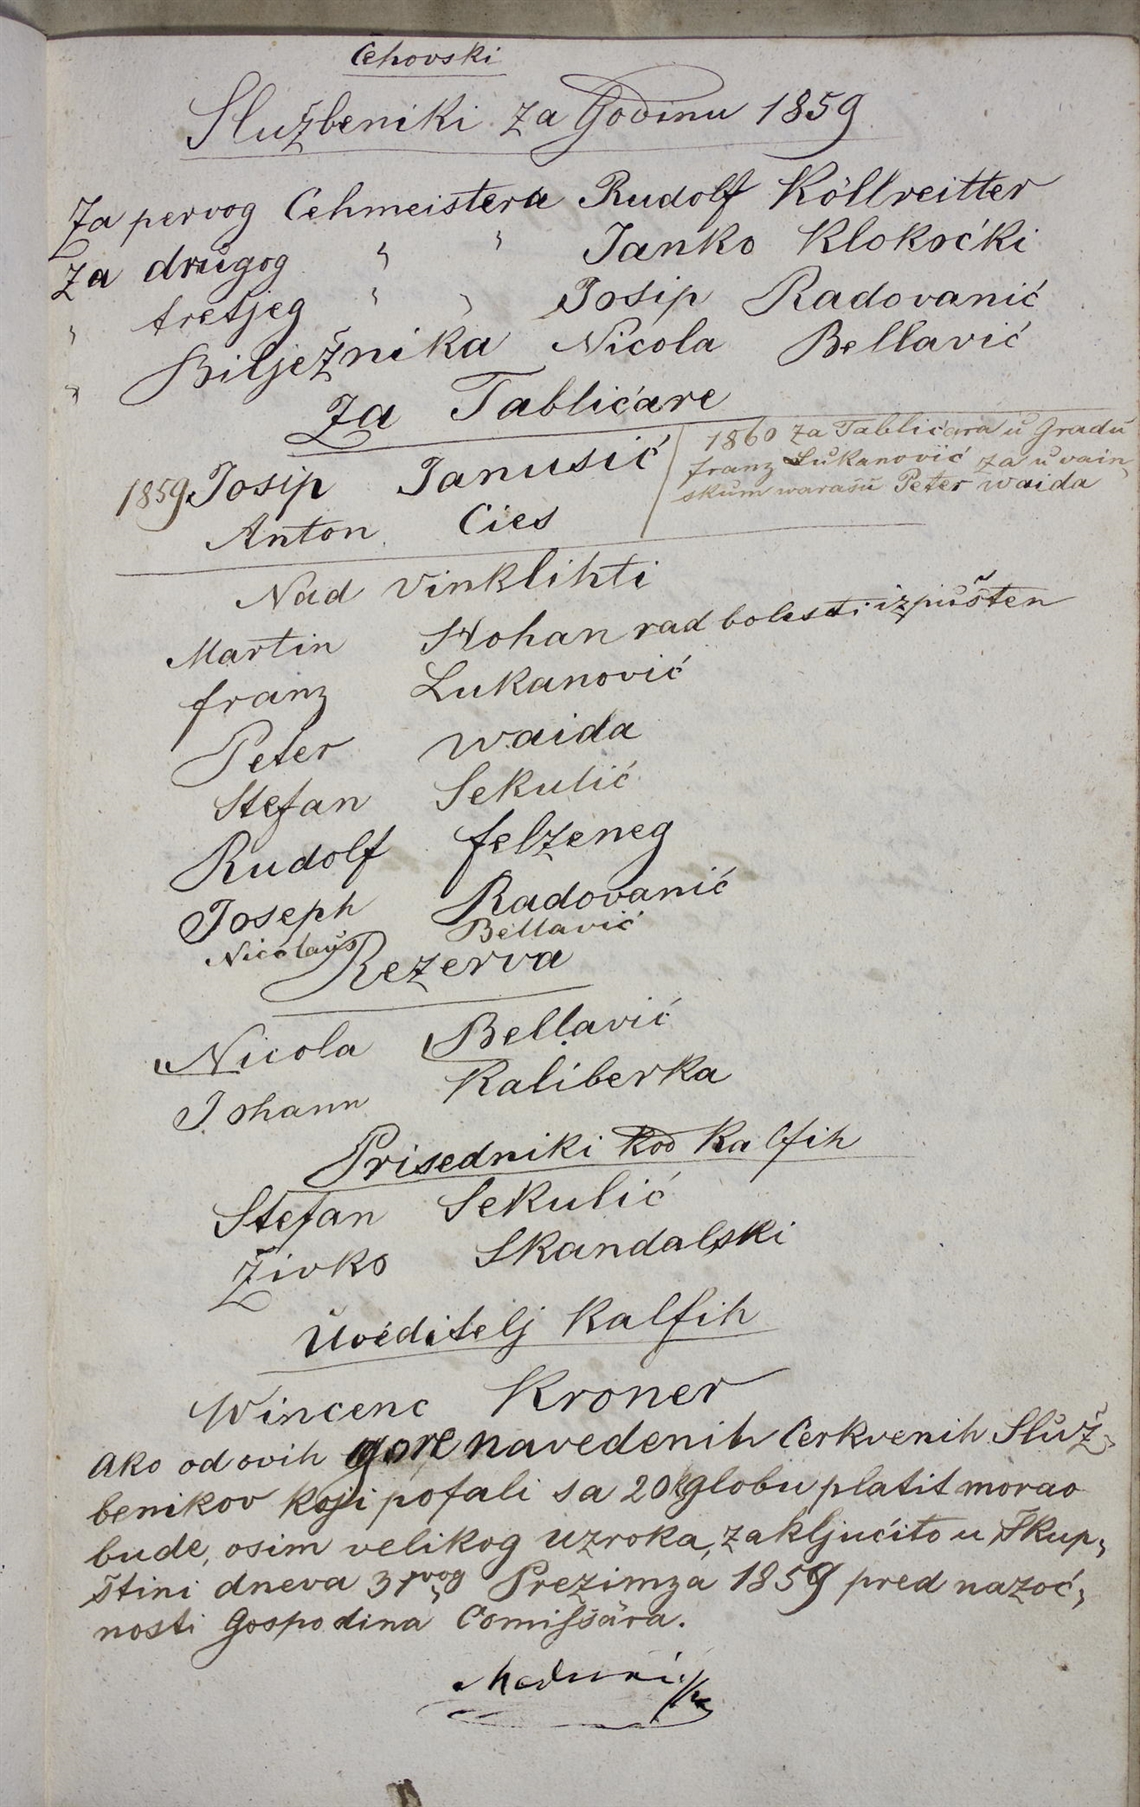 Cehovski
Službeniki za Godinu 1859
Za pervog Cehmeistera Rudolf Köllreitter
Za drŭgog " " Janko Klokoćki
" tretjeg " " Josip Radovanić
" Bilježnika Nicola Bellavić
Za Tablićare
1859 Josip Janusić
Anton Cies
1860 za Tablićara ŭ Gradŭ
franz Lŭkanović za ŭ vain-
skŭm warašŭ Peter waida
Nad Vinklihti
Martin Hohan rad bolesti izpŭšten
franz Lukanović
Peter waida
Stefan Sekulić
Rudolf felzeneg
Joseph Radovanić
Nicolaŭs Bellavić
Rezerva
Nicola Bellavić
Johann Kaliberka
Prisedniki kod Kalfih
Stefan Sekulić
Živko Skandalski
Uvéditelj Kalfih
Wincenc Kroner
Ako od ovih gore navedenih Cerkvenih Služ-
benikov koji pofali sa 20 globu platit morao
bude, osim velikog uzroka, zakljućito u Skup-
štini dneva 31vog Prezimza 1859 pred nazoć-
nosti Gospodina Comissara.